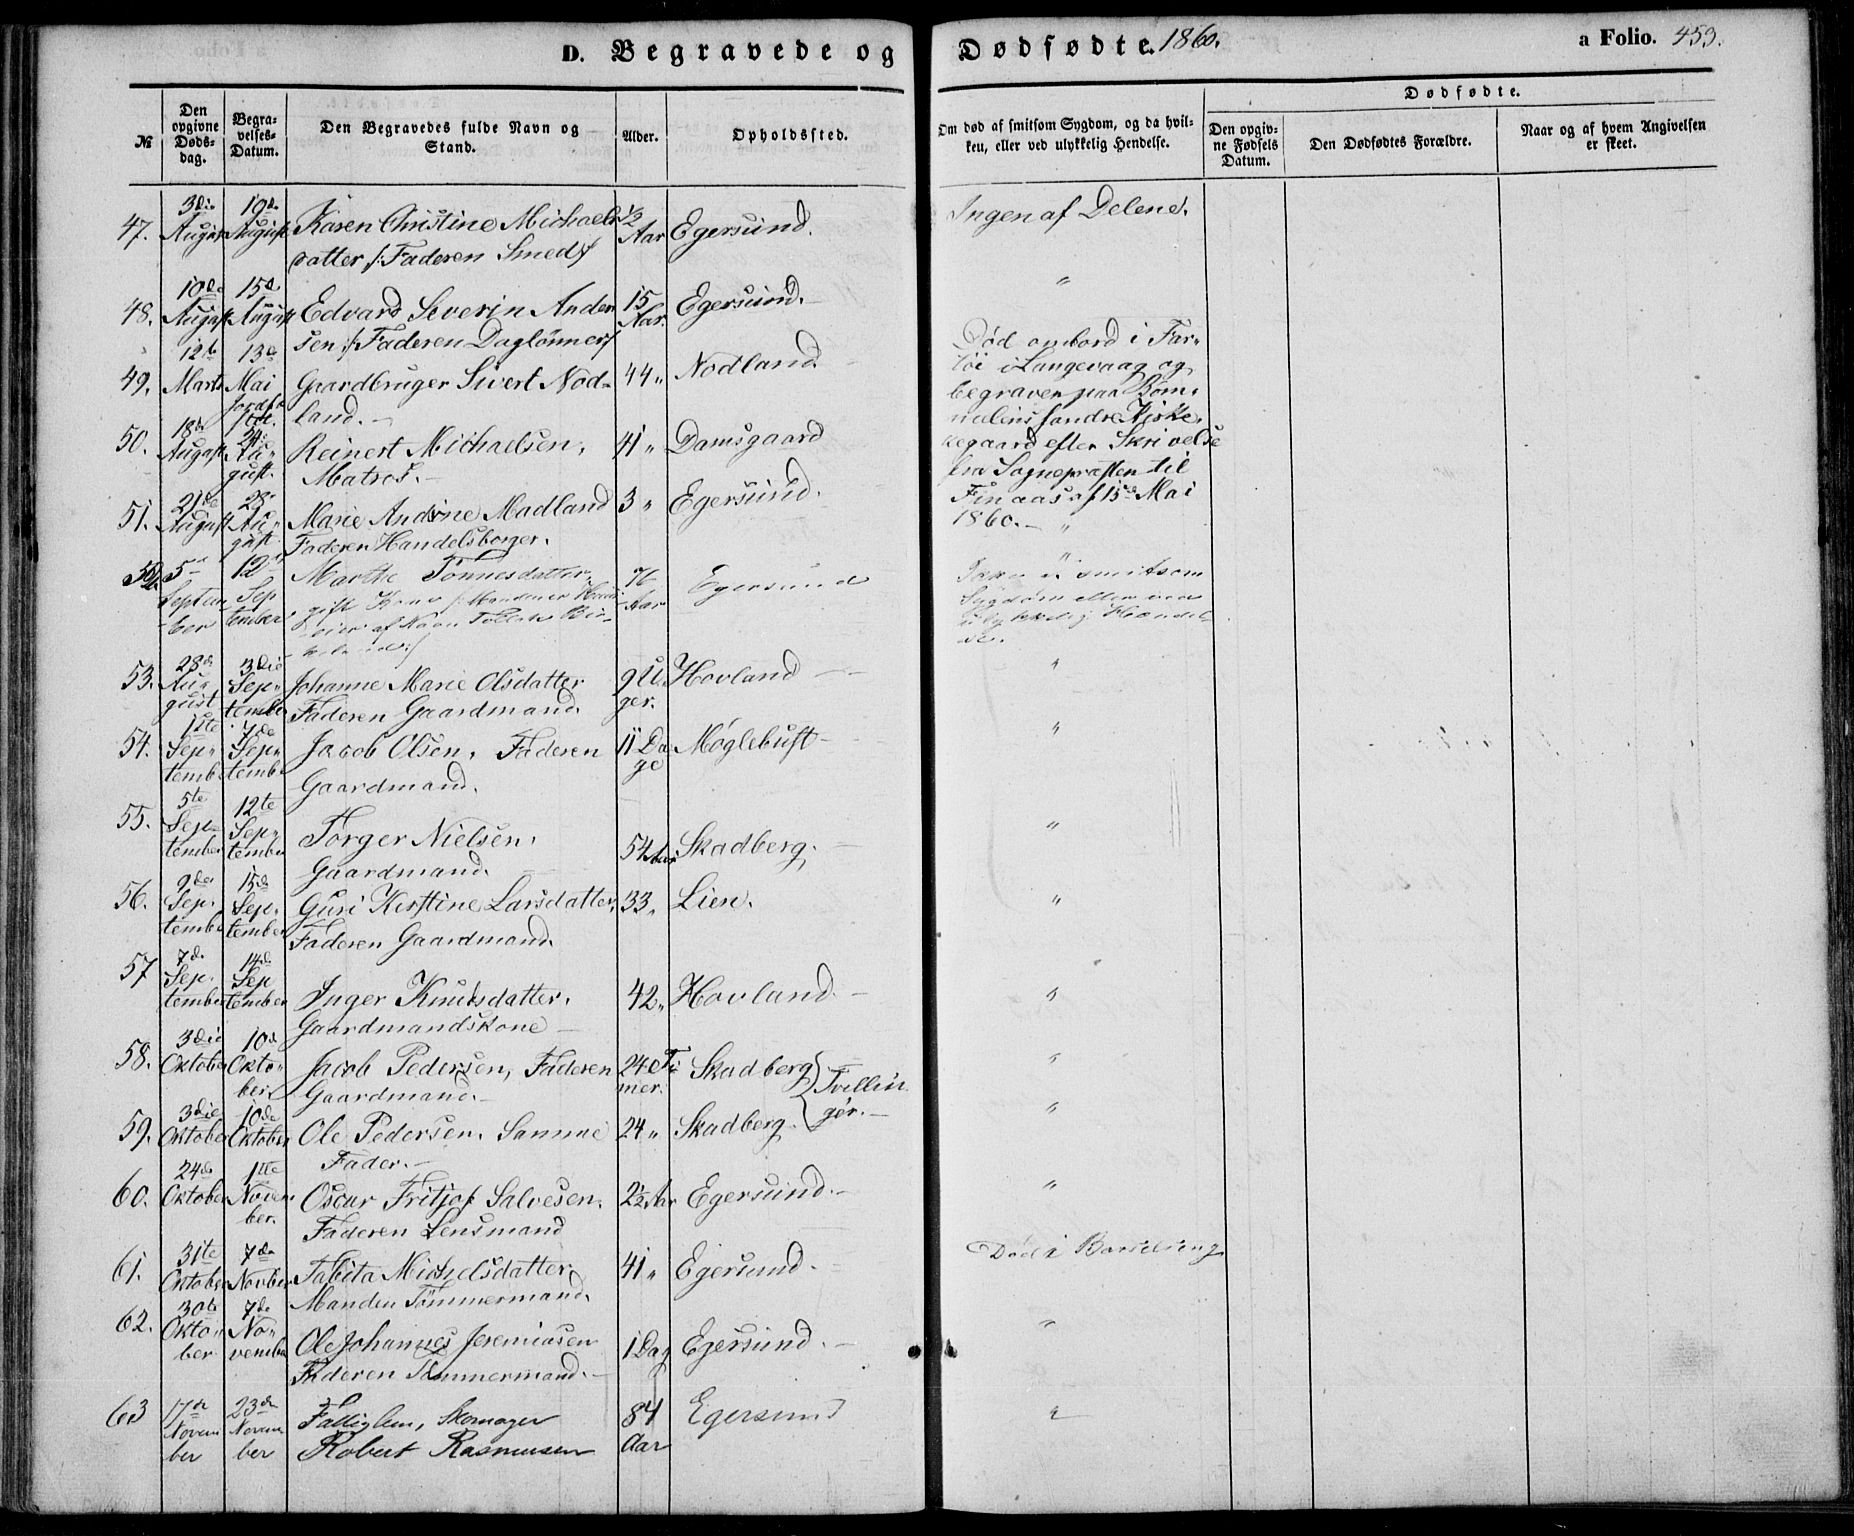 D. Begravede og Dødfødte. 1860. a Folio. 453.
№
Den opgivne Døds-dag.
Begra-velses-Datum.
Den Begravedes fulde Navn og Stand.
Alder.
Opholdssted.
Om død af smitsom Sygdom, og da hvil-ken, eller ved ulykkelig Hendelse.
Dødfødte.
Den opgiv-ne Fødsels Datum.
Den Dødfødtes Forældre.
Naar og af hvem Angivelsen er skeet.
47. 3die August 10de August Karen Christine Michaels- 1/2 Aar Egersund. Ingen af Delene.
datter /: Faderen Smed :/
48. 10de August 15de August Edvard Severin Ander 15 Aar. Egersund. "
sen /: Faderen Daglønner :/
49. 12te Marts 13de Mai Jordf. Gaardbruger Sivert Nod- 44 " Nodland Død ombord i Far-
land.
tøi i Langevaag og
begraven paa Bøm-
melens søndre Kirke-
kegaard efter Skrivelse
fra Sognepræsten til
Finaas af 15de Mai
1860.
50. 18de August 24de August. Reinert Michaelsen, 41 " Damsgaard
Matros.
51. 21de August 28de August Marie Andrine Madland 3 " Egersund. "
Faderen Handelsborger.
52. 5te September 12te September Marthe Tønnesdatter, 76 Aar Egersund Ikke af smitsom
gift Kone /: Manden er Huus-
eier af Navn Tollak
Sygdom eller ved
ulykkelig Hændel-
se.
53. 28de August 3die September Johanne Marie Olsdatter 9 Uger. Hovland "
Faderen Gaardmand.
54. 1ste September 7de September Jacob Olsen, Faderen 11 Dage Møglebust "
Gaardmand.
55. 5te September 12te September Torger Nielsen, 54 Aar Skadberg. "
Gaardmand.
56. 9de September 15de September Guri Kerstine Larsdatter, 33 " Lien. "
Faderen Gaardmand.
57 7de September 14de September Inger Knudsdatter, 42 " Hovland. "
Gaardmandskone
58. 3die Oktober 10de Oktober Jacob Pedersen, Faderen 24 Timer. Skadberg } Tvillin "
Gaardmand.
59. 3die Oktober 10de Oktober Ole Pedersen. Samme 24 " Skadberg. } ger. "
Fader.
60. 24de Oktober 1ste November. Oscar Fritjof Salvesen. 2 1/2 Aar Egersund. "
Faderen Lensmand
61. 31te Oktober 7de Novber Tabita Michelsdatter 41 " Egersund. Død i Barselseng
Manden Tømmermand.
62. 30te Oktober 7de November Ole Johannes Jeremiasen 1 Dag Egersund. "
Faderen Tømmermand.
63 17de November 23de November Fattiglem, Skomager 84 Aar Egersund "
Robert Rasmussen